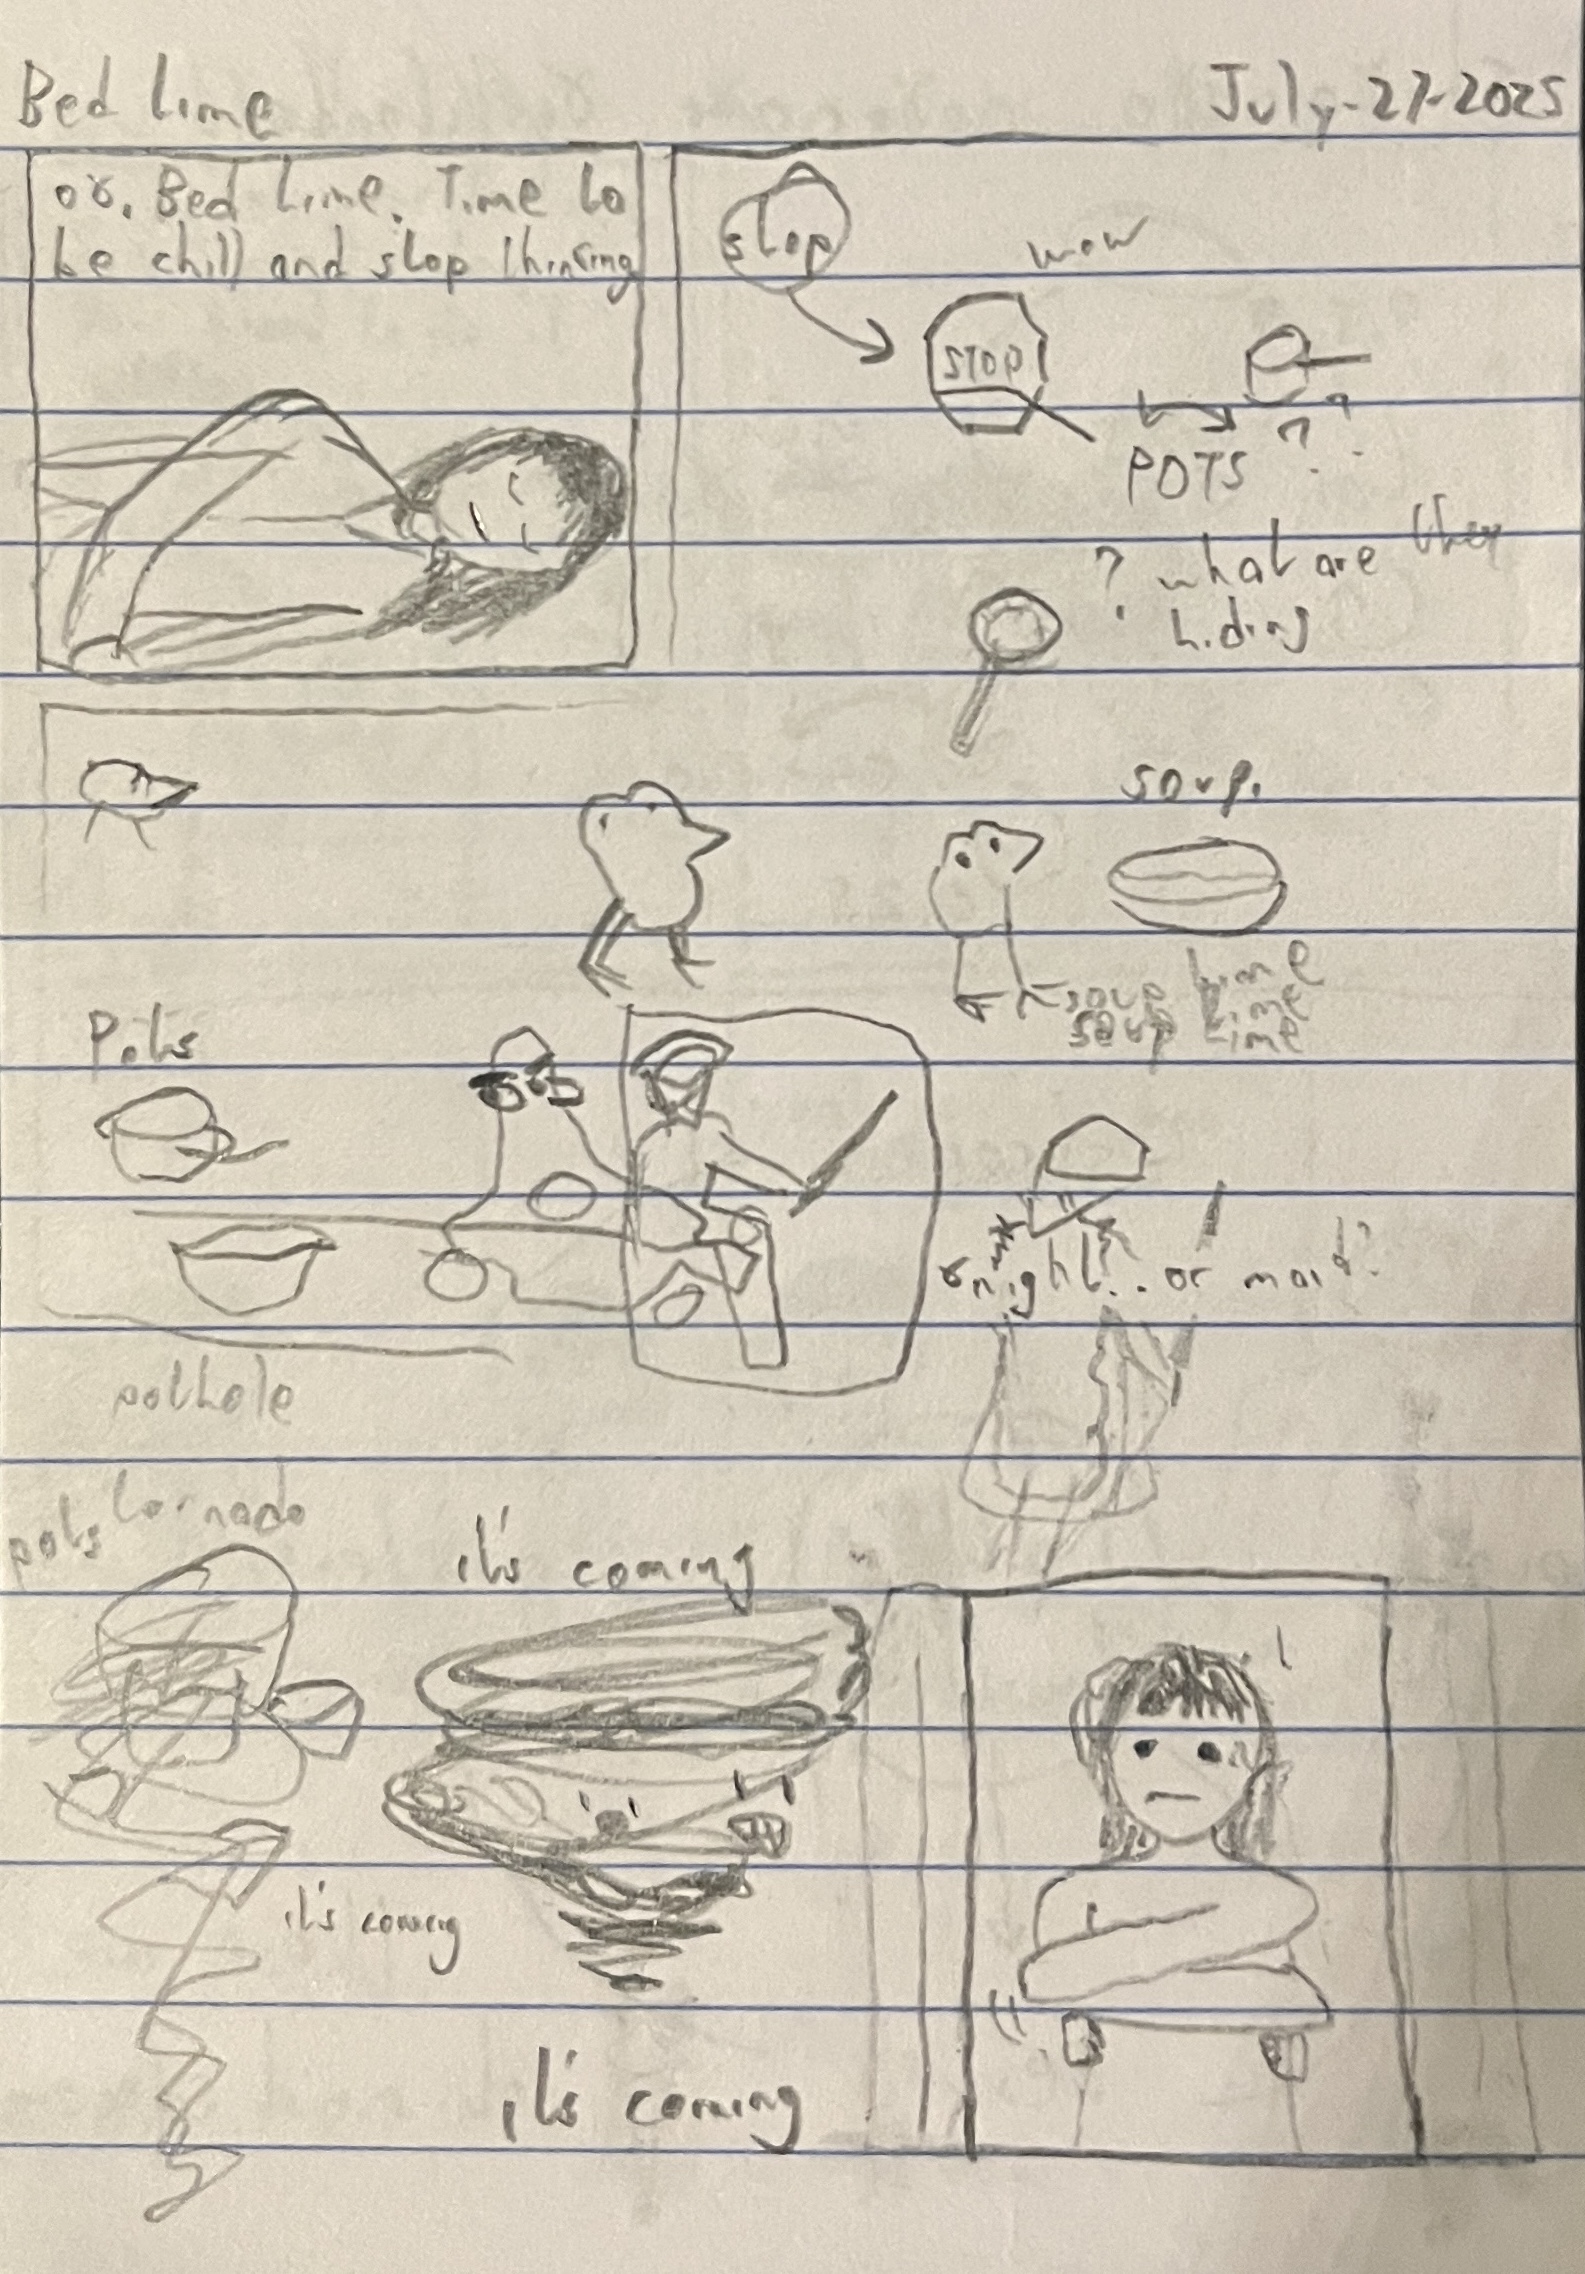 Bed time
July-27-2025
ok. Bed time. Time to
be chill and stop thinking
stop
wow
STOP
POTS ? ? ?
? what are they
hiding
soup.
soup time
soup time
Pots
knight... or mop?
pothole
pots tornado
it's coming
it's coming
it's coming